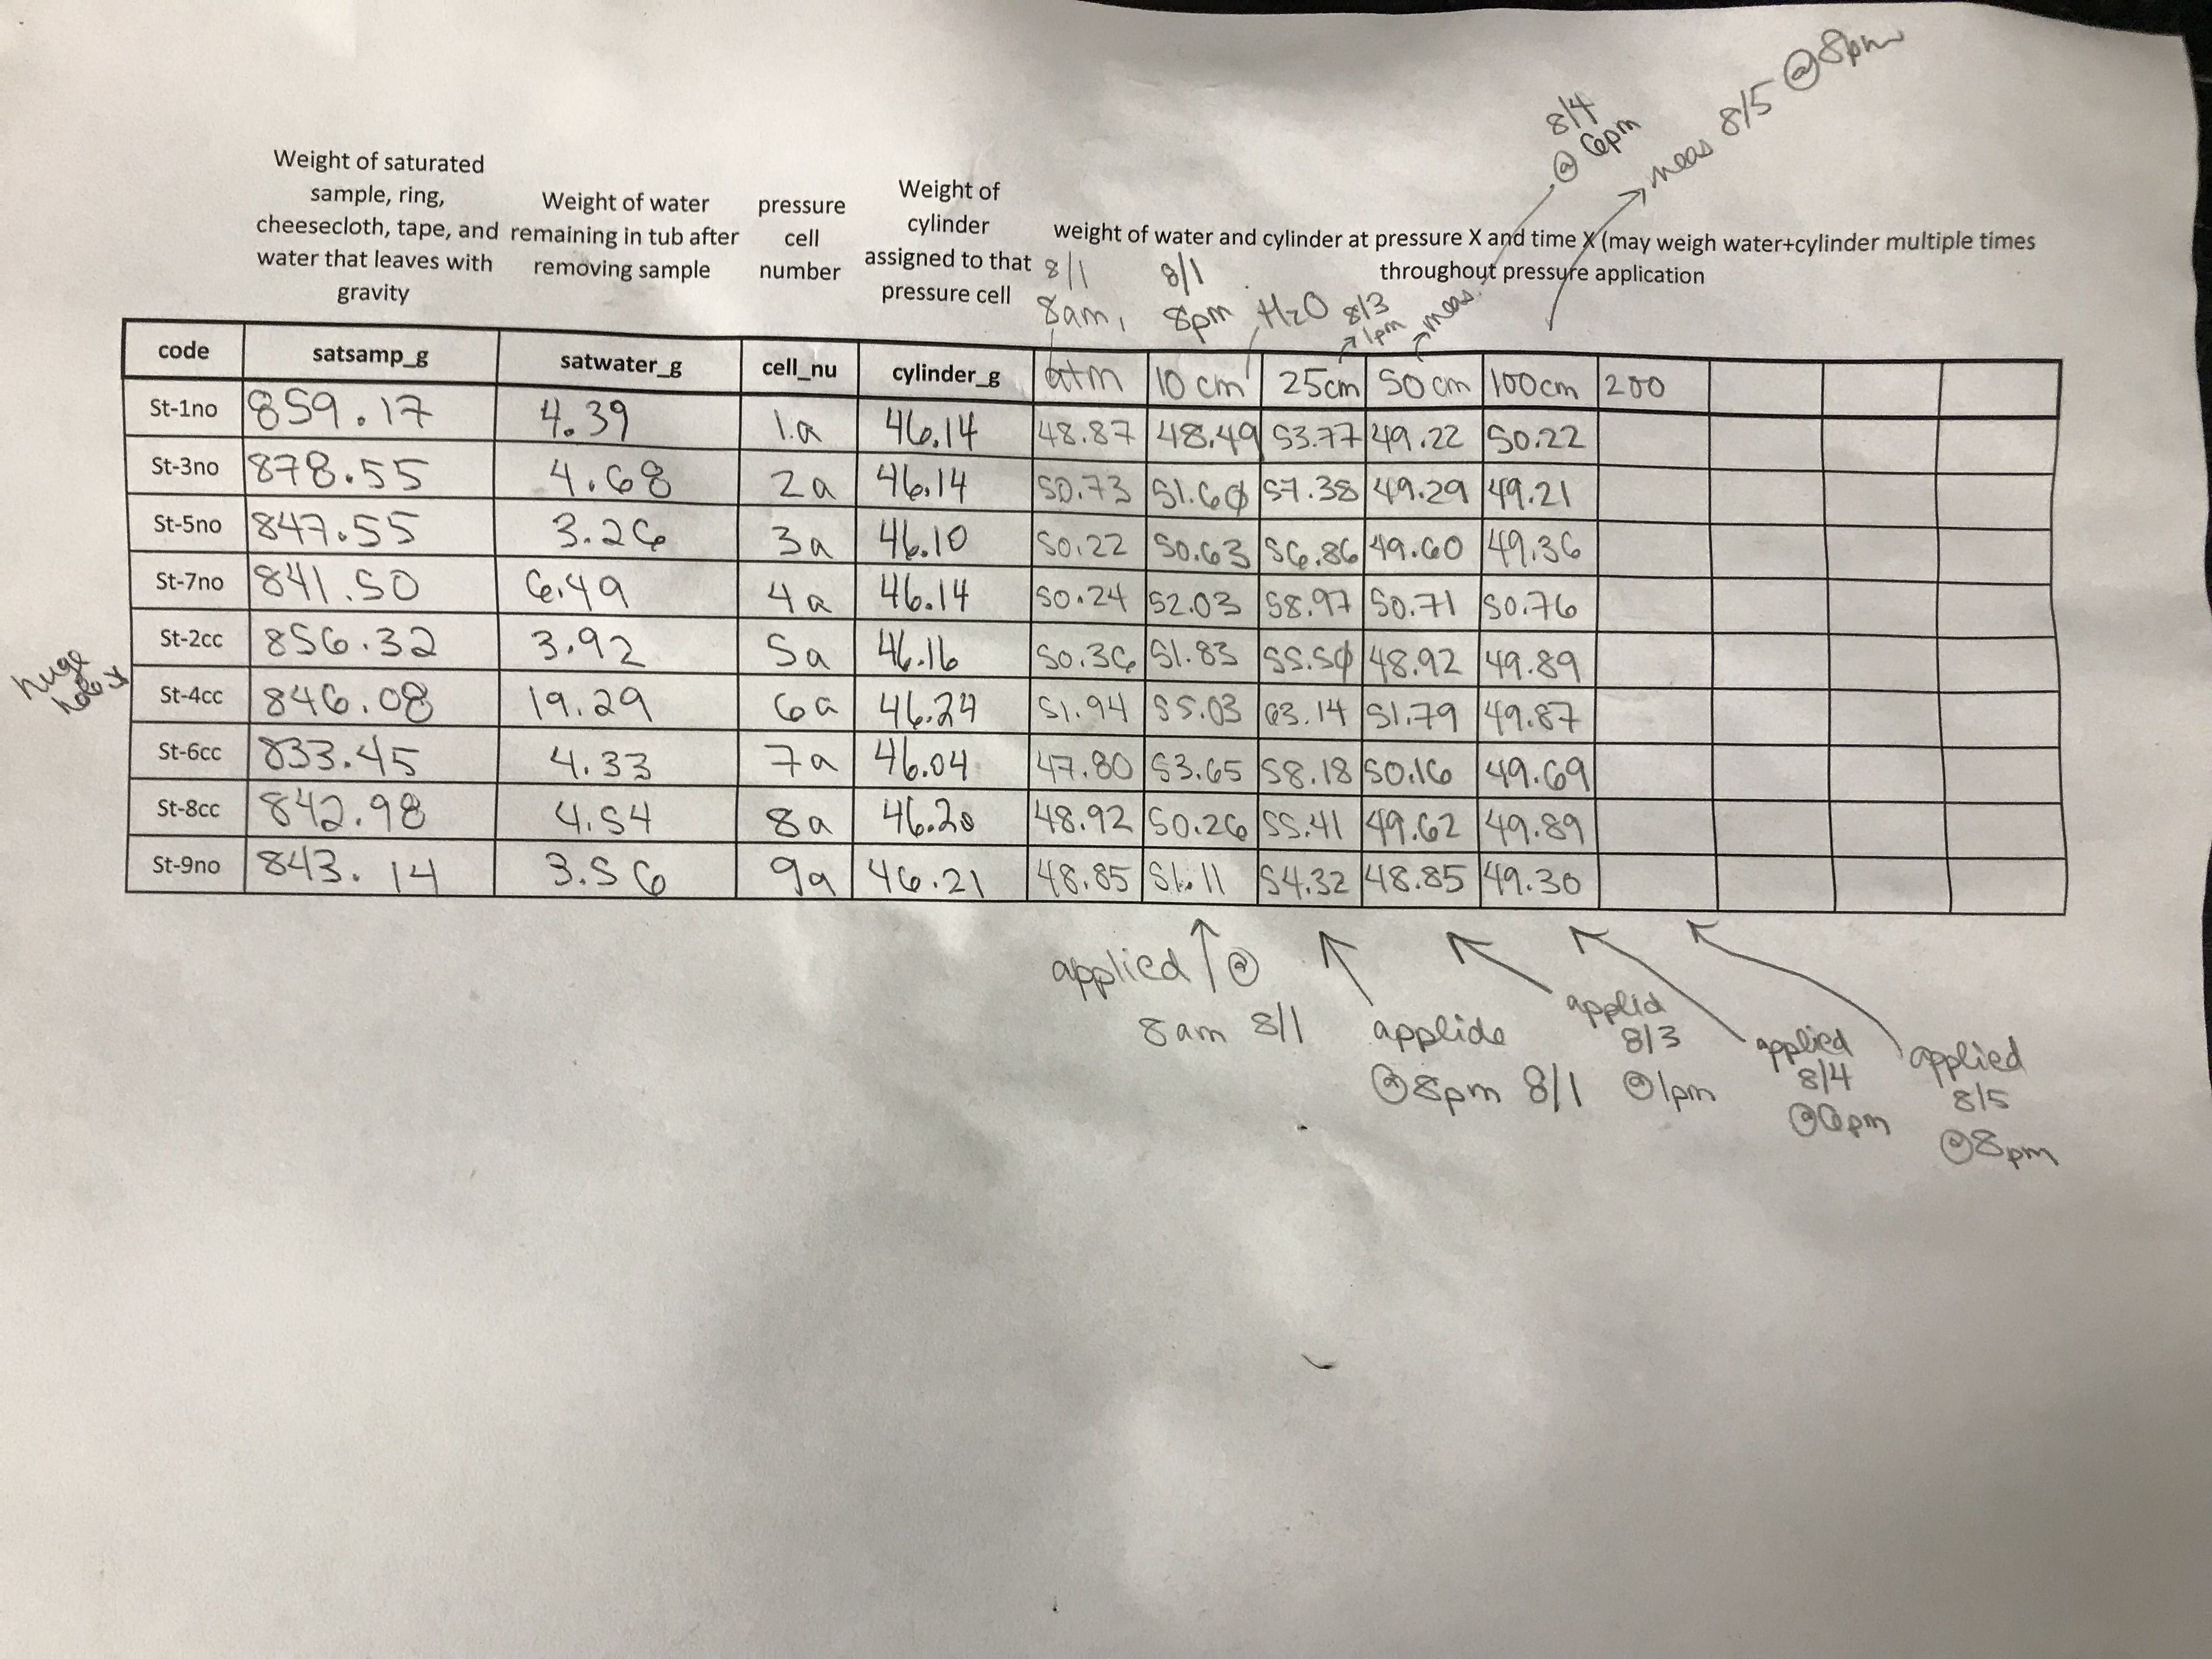 8/4
@ 6pm
meas 8/5 @ 8pm
Weight of saturated
sample, ring,
cheesecloth, tape, and
water that leaves with
gravity
Weight of water
remaining in tub after
removing sample
pressure
cell
number
Weight of
cylinder
assigned to that
pressure cell
weight of water and cylinder at pressure X and time X (may weigh water+cylinder multiple times
throughout pressure application
8/1
8am,
8/1
8pm
H2O
8/3
1pm
meas.
code satsamp_g satwater_g cell_nu cylinder_g atm 10 cm 25cm 50 cm 100cm 200
St-1no 859.17 4.39 1a 46.14 48.87 48.49 53.77 49.22 50.22
St-3no 878.55 4.68 2a 46.14 50.73 51.60 57.38 49.29 49.21
St-5no 847.55 3.26 3a 46.10 50.22 50.63 56.86 49.60 49.36
St-7no 841.50 6.49 4a 46.14 50.24 52.03 58.97 50.71 50.76
St-2cc 856.32 3.92 5a 46.16 50.36 51.83 55.50 48.92 49.89
huge
St-4cc 846.08 19.29 6a 46.24 51.94 55.03 63.14 51.79 49.87
St-6cc 833.45 4.33 7a 46.04 47.80 53.65 58.18 50.16 49.69
St-8cc 842.98 4.54 8a 46.20 48.92 50.26 55.41 49.62 49.89
St-9no 843.14 3.56 9a 46.21 48.85 51.11 54.32 48.85 49.30
applied @
8am 8/1
applide
@8pm 8/1
applid
8/3
@1pm
applied
8/4
@6pm
applied
8/5
@8pm